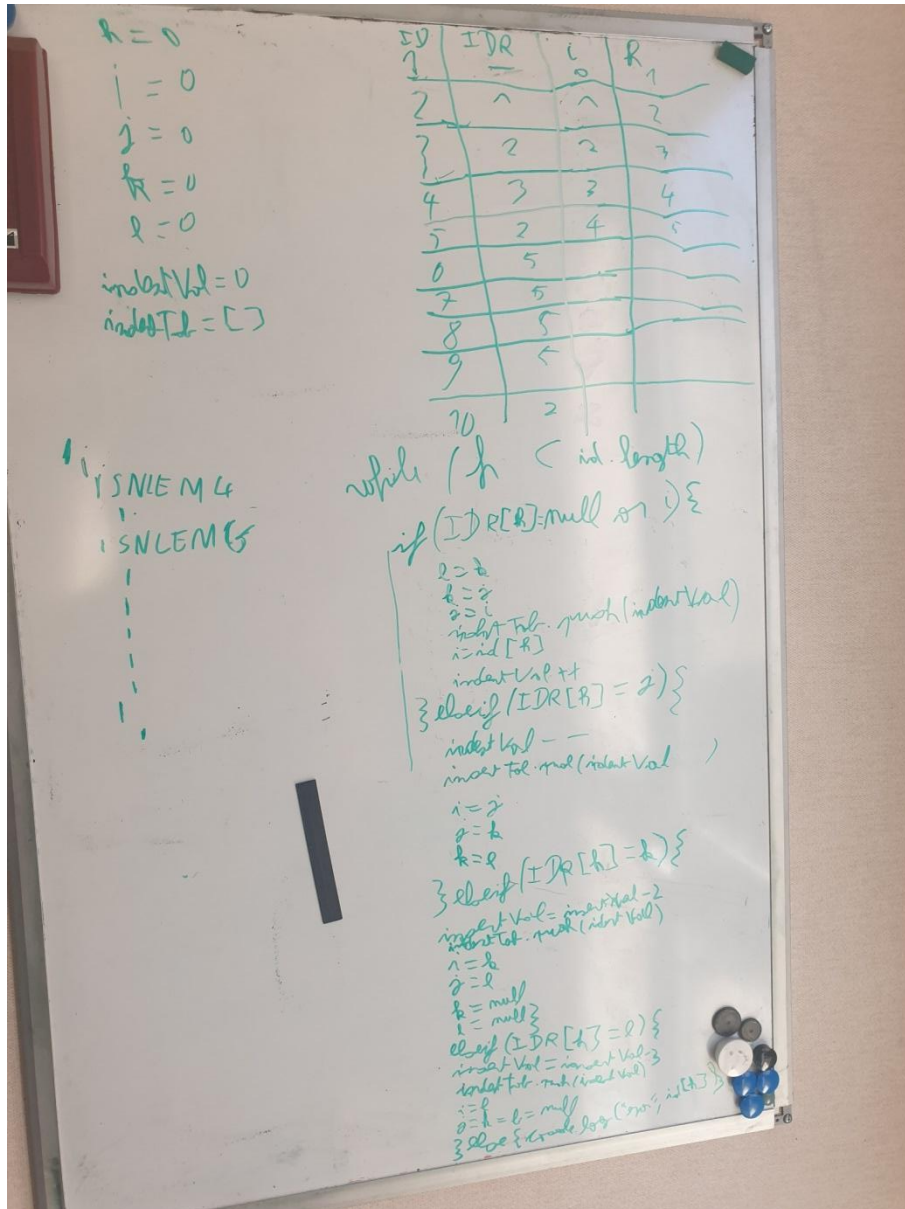 h = 0
i = 0
j = 0
k = 0
l = 0
indentVal = 0
indentTab = [ ]
ID IDR i h
1 — 0 1
2 1 1 2
3 2 2 3
4 3 3 4
5 2 4 5
6 5
7 5
8 5
9 5
10 2
SNLEM4
SNLEM5
while (h < id.length)
if (IDR[h]=null or i){
l = k
k = j
j = i
indentTab.push(indentVal)
i=id[h]
indentVal++
}elseif(IDR[h] = j){
indentVal --
indentTab.push(indentVal )
i = j
j = k
k = l
}elseif(IDR[h] = k){
indentVal = indentVal-2
indentTab.push(indentVal)
i = k
j = l
k = null
l = null}
elseif(IDR[h] = l){
indentVal = indentVal-3
indentTab.push(indentVal)
i = l
j = k = l = null
}else{console.log( id[h])}